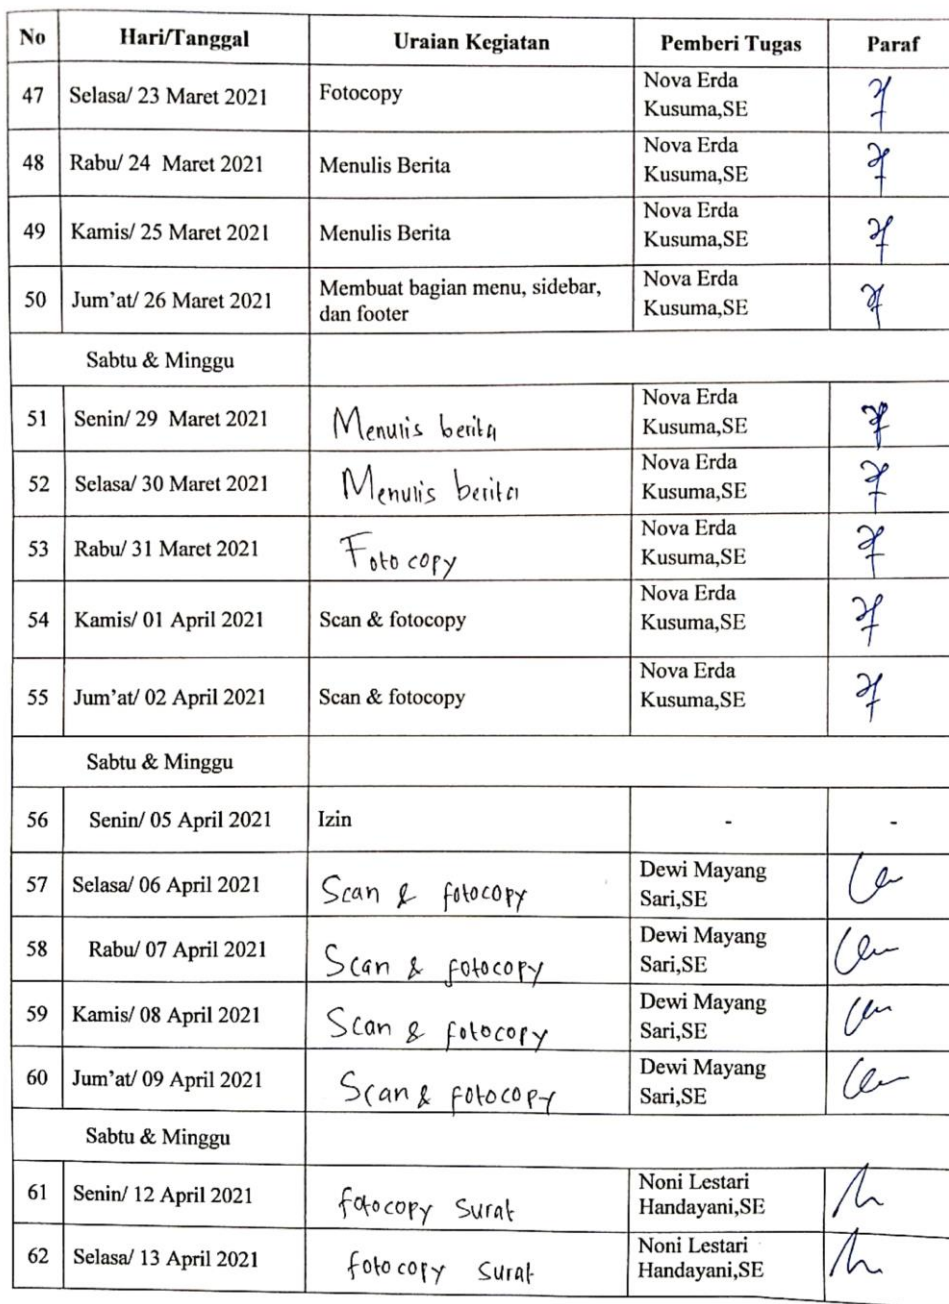 No Hari/Tanggal Uraian Kegiatan Pemberi Tugas Paraf
47 Selasa/ 23 Maret 2021 Fotocopy Nova Erda
Kusuma,SE
48 Rabu/ 24 Maret 2021 Menulis Berita Nova Erda
Kusuma,SE
49 Kamis/ 25 Maret 2021 Menulis Berita Nova Erda
Kusuma,SE
50 Jum'at/ 26 Maret 2021 Membuat bagian menu, sidebar, Nova Erda
dan footer Kusuma,SE
Sabtu & Minggu
51 Senin/ 29 Maret 2021 Menulis berita Nova Erda
Kusuma,SE
52 Selasa/ 30 Maret 2021 Menulis berita Nova Erda
Kusuma,SE
53 Rabu/ 31 Maret 2021 Fotocopy Nova Erda
Kusuma,SE
54 Kamis/ 01 April 2021 Scan & fotocopy Nova Erda
Kusuma,SE
55 Jum'at/ 02 April 2021 Scan & fotocopy Nova Erda
Kusuma,SE
Sabtu & Minggu
56 Senin/ 05 April 2021 Izin - -
57 Selasa/ 06 April 2021 Scan & fotocopy Dewi Mayang
Sari,SE
58 Rabu/ 07 April 2021 Scan & fotocopy Dewi Mayang
Sari,SE
59 Kamis/ 08 April 2021 Scan & fotocopy Dewi Mayang
Sari,SE
60 Jum'at/ 09 April 2021 Scan & fotocopy Dewi Mayang
Sari,SE
Sabtu & Minggu
61 Senin/ 12 April 2021 fotocopy surat Noni Lestari
Handayani,SE
62 Selasa/ 13 April 2021 fotocopy surat Noni Lestari
Handayani,SE